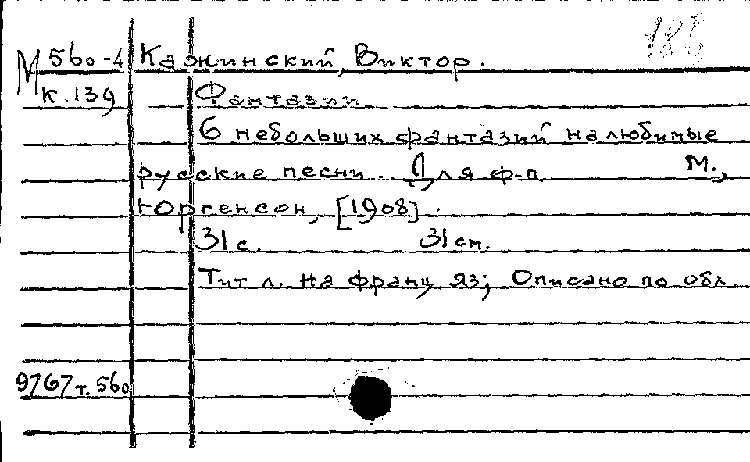 М 560-4 Кажинский, Виктор.
К.139 Фантазии
6 небольших фантазий на любимые
русские песни. Для ф-п. М.,
Юргенсон, [1908].
31 с. 31 см.
Тит л. на франц яз; Описано по обл
9767 т. 560